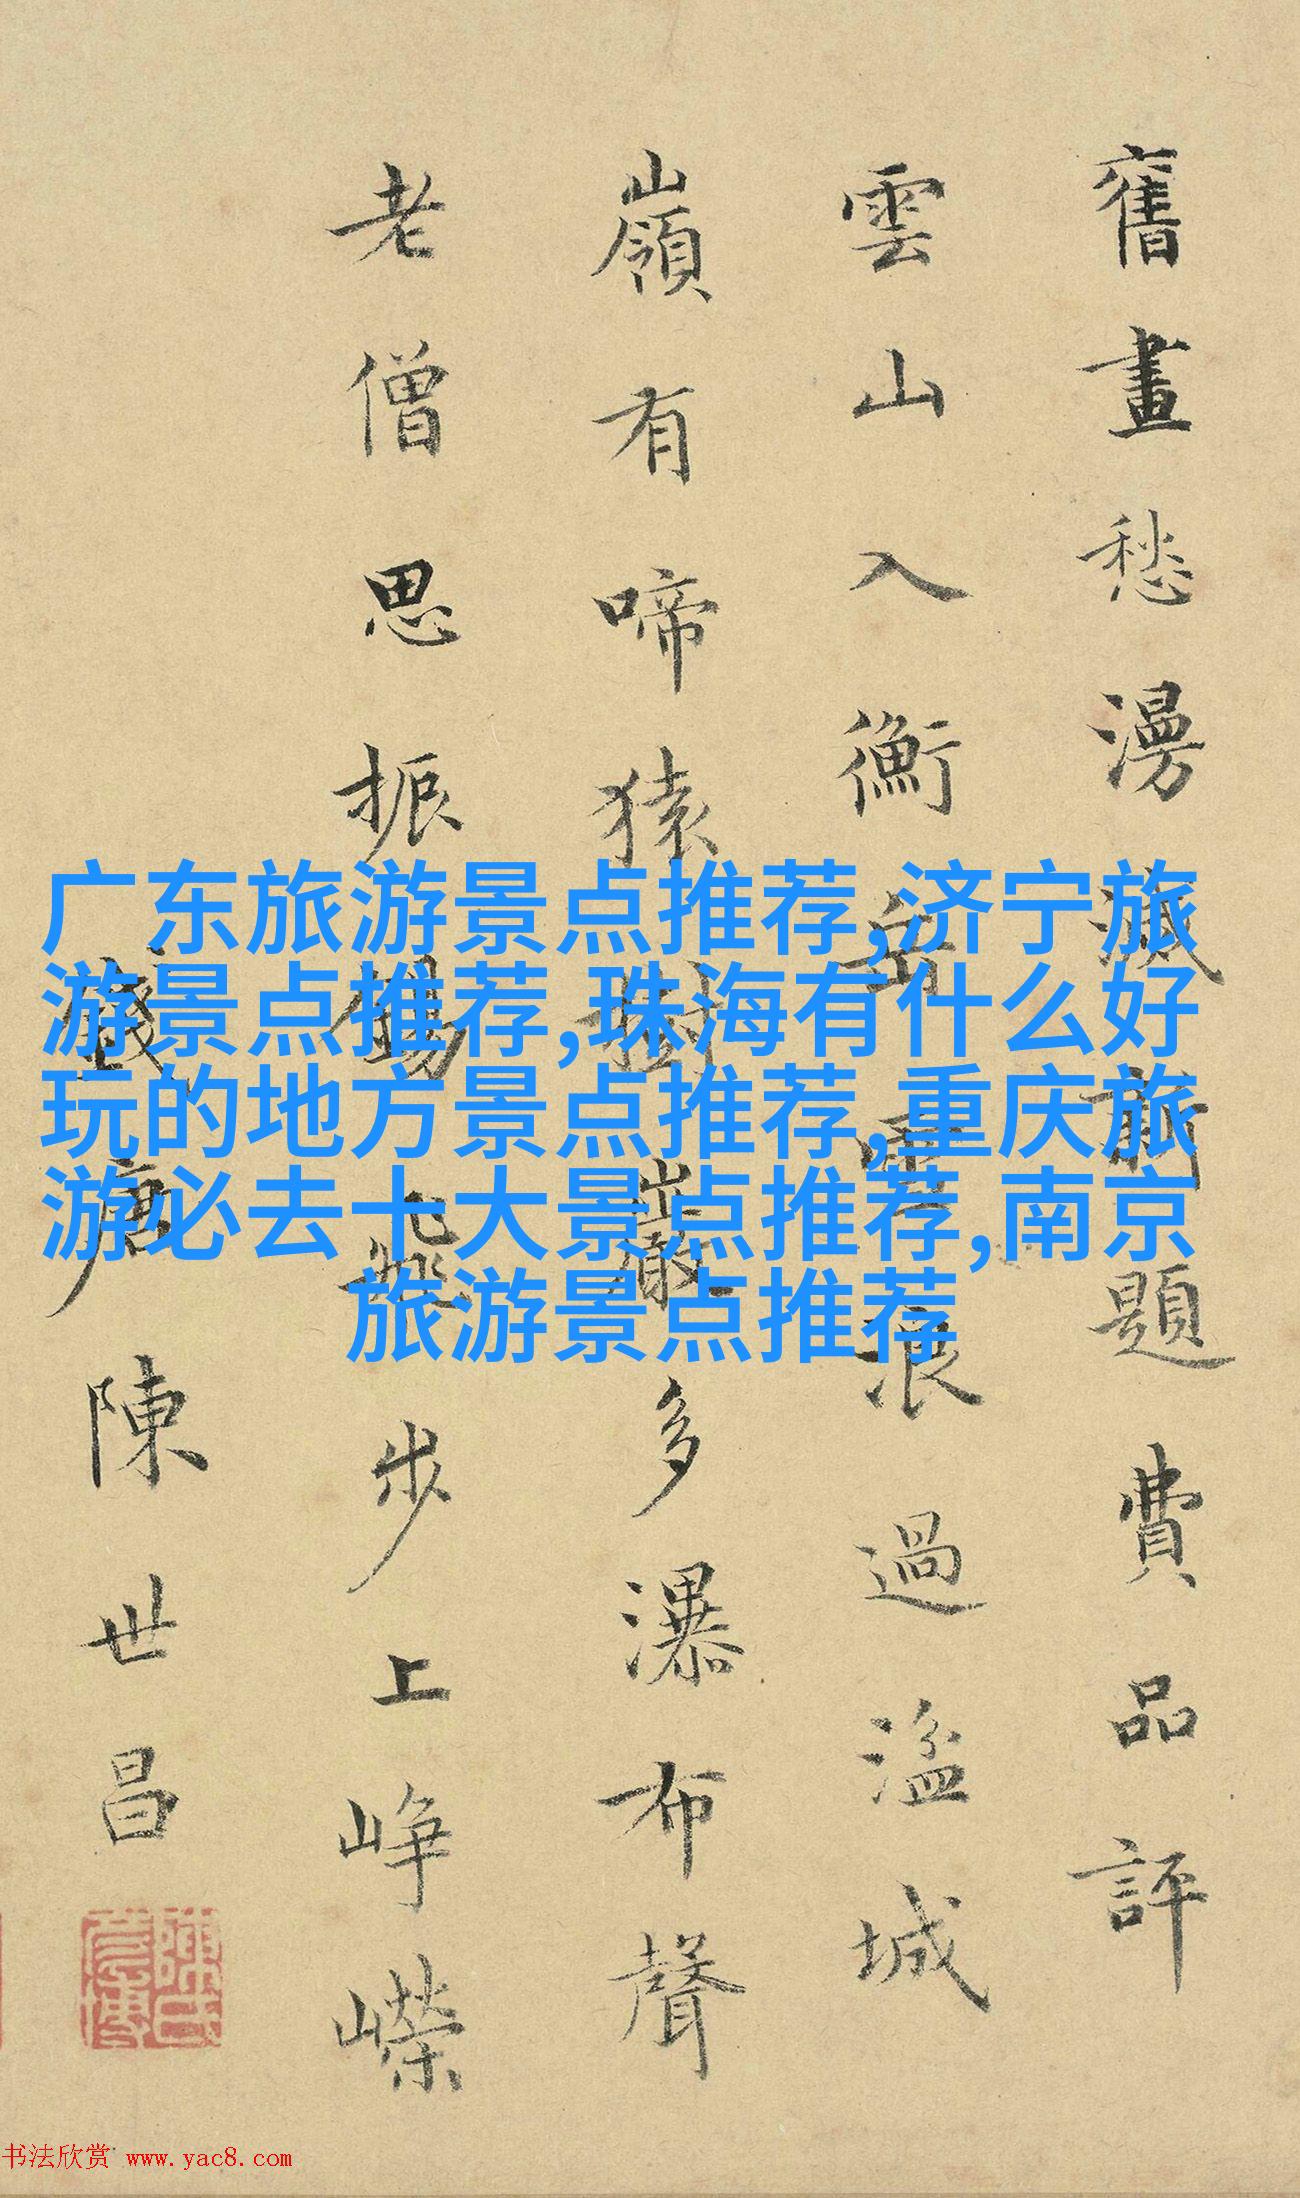 舊畫愁漫滅新題費品評
雲山入衡岳雪浪過湓城
嶺有啼猿樹巖多瀑布聲
老僧思振錫飛步上崢嶸
錢唐陳世昌
广东旅游景点推荐,济宁旅
游景点推荐,珠海有什么好
玩的地方景点推荐,重庆旅
游必去十大景点推荐,南京
旅游景点推荐
书法欣赏 www.yac8.com